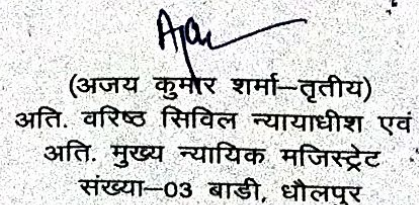 (अजय कुमार शर्मा–तृतीय)
अति. वरिष्ठ सिविल न्यायाधीश एवं
अति. मुख्य न्यायिक मजिस्ट्रेट
संख्या–03 बाडी, धौलपुर